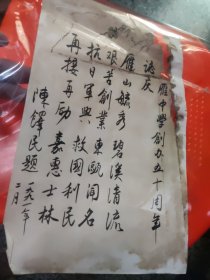 雁中学创办五十周年
志庆
雁山毓秀 碧溪清流
艰苦创业 东瓯闻名
抗日军兴 救国利民
再接再励 嘉惠士林
陈铎民题 一九八八年
二月